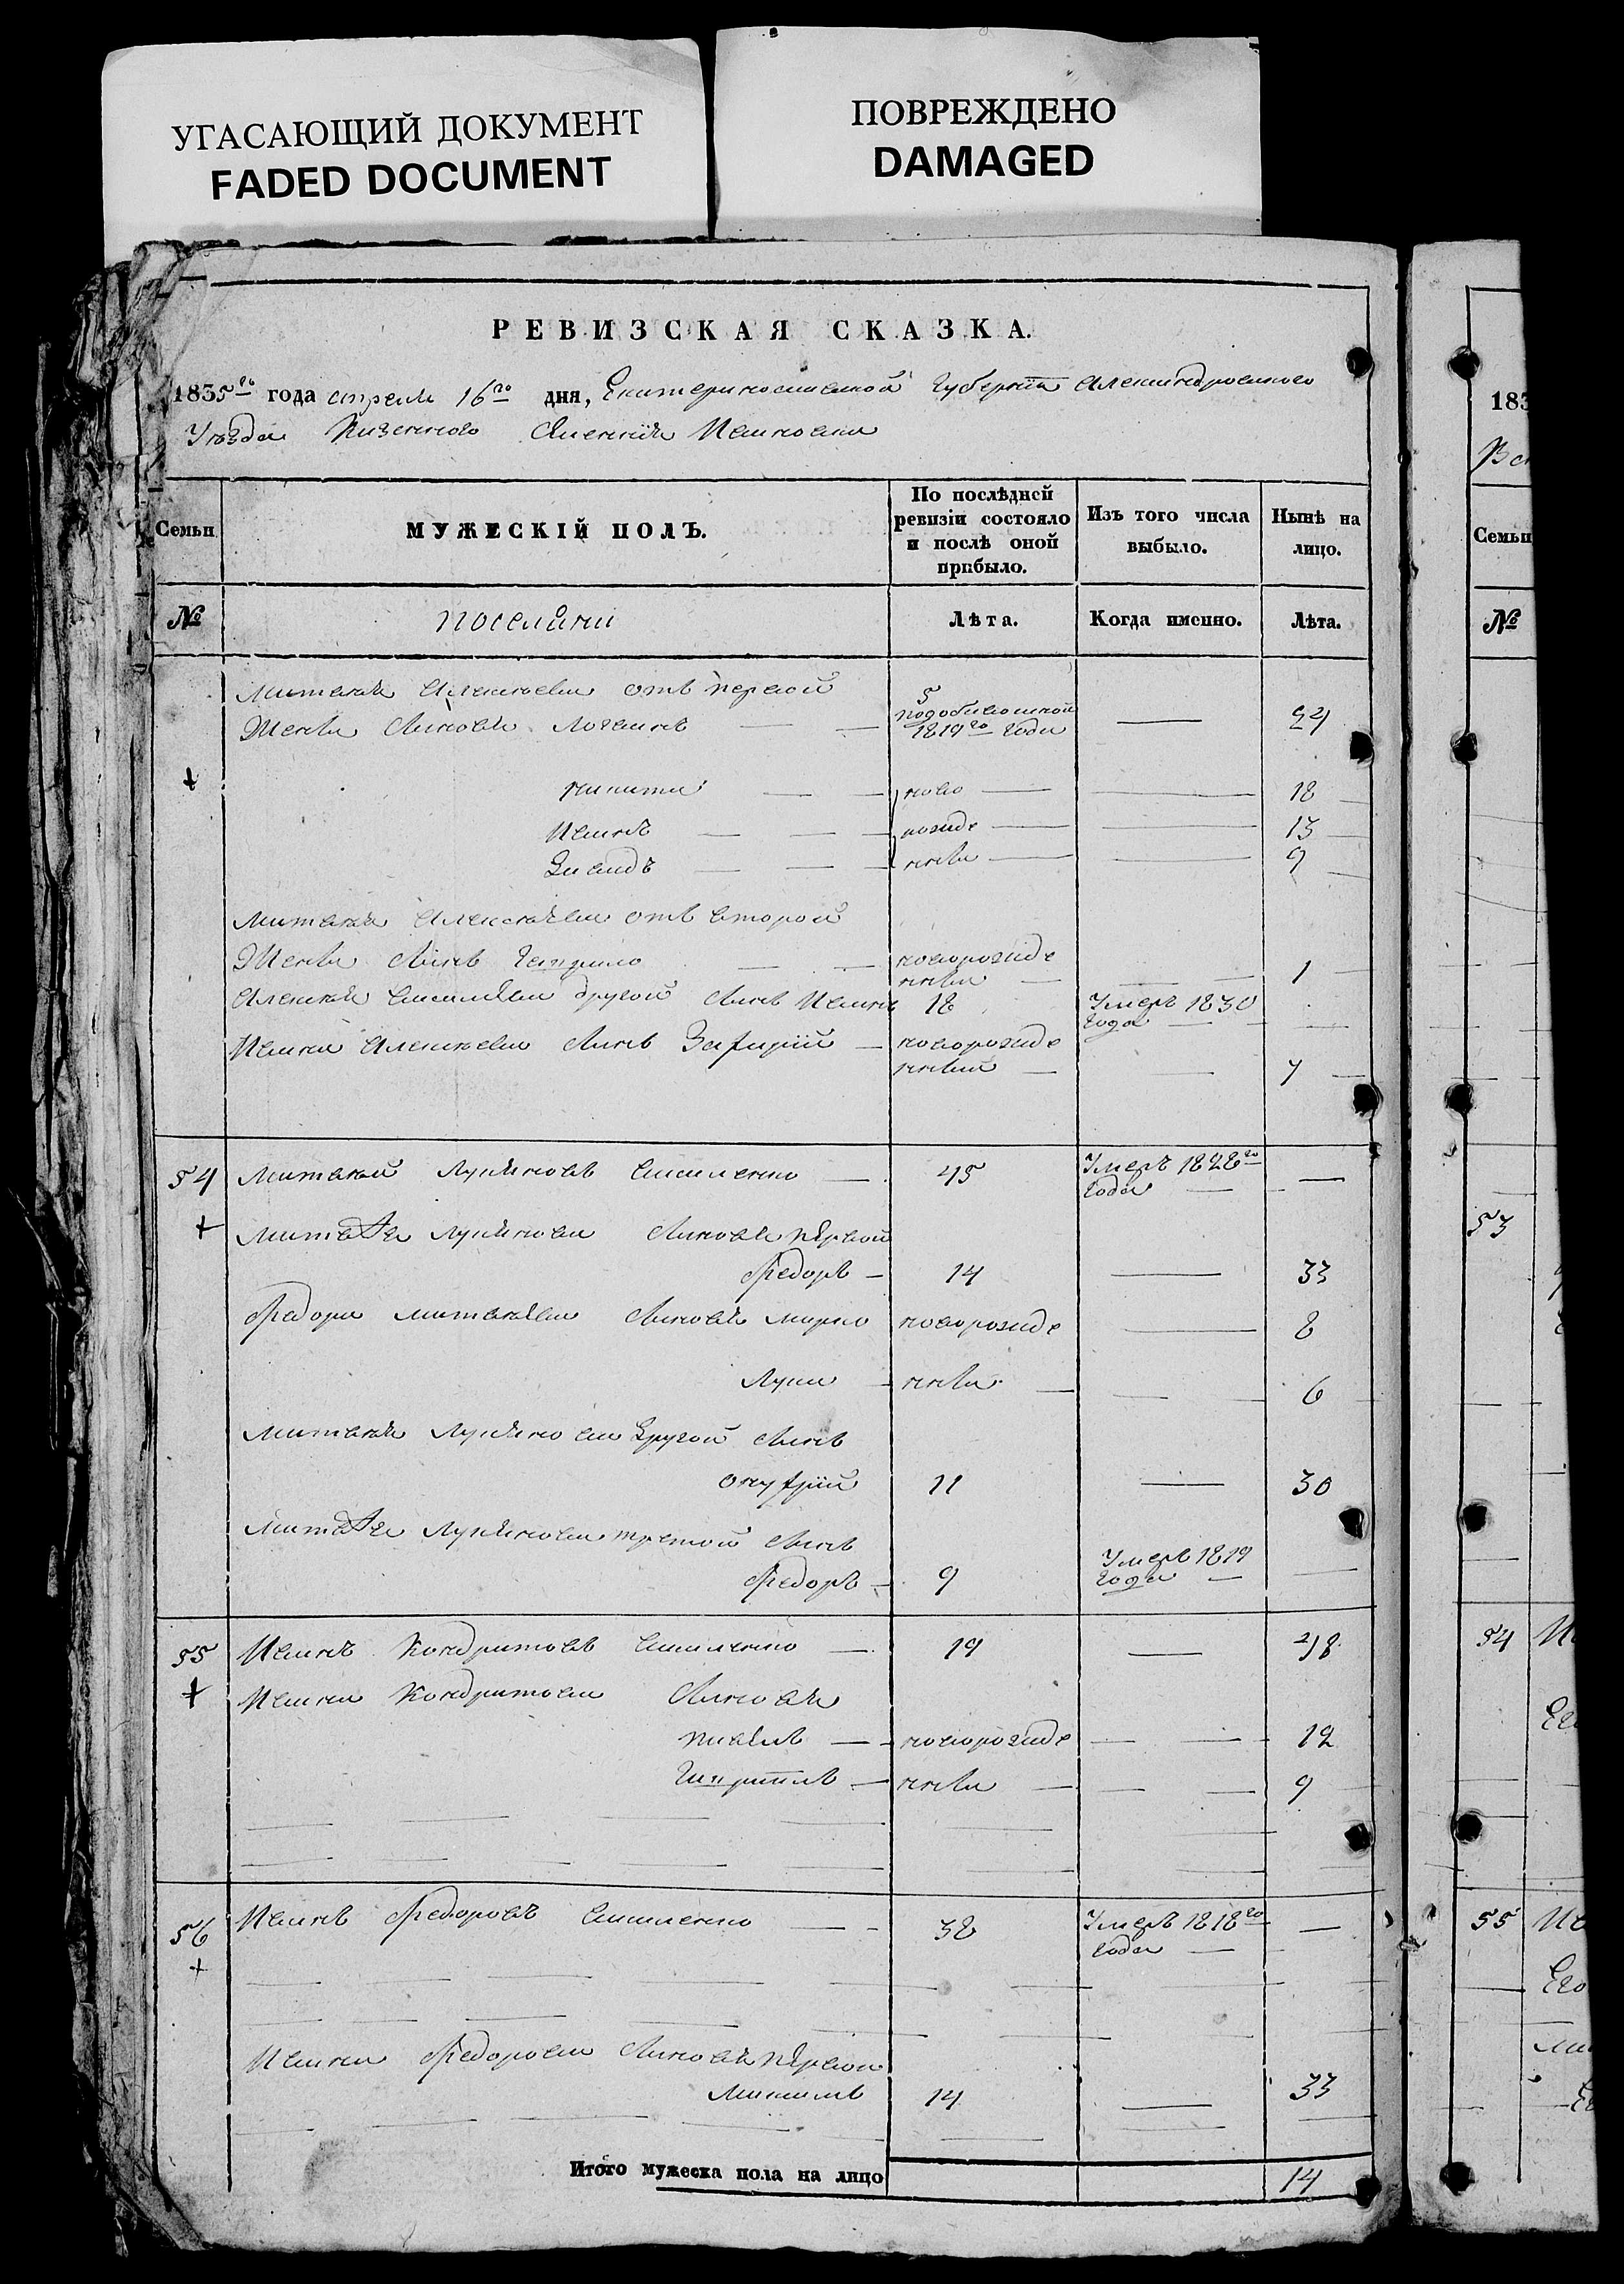 УГАСАЮЩИЙ ДОКУМЕНТ
FADED DOCUMENT
ПОВРЕЖДЕНО
DAMAGED
РЕВИЗСКАЯ СКАЗКА.
1835го года апреля 16го дня, Екатеринославской Губернии Александровского
Уезда Казенного Селения Ивановки
Семьи
МУЖЕСКІЙ ПОЛЪ.
По послѣдней ревизіи состояло и послѣ оной прибыло.
Изъ того числа выбыло.
Нынѣ на лицо.
№
поселяни
Лѣта.
Когда именно.
Лѣта.
Матвея Алексеева отъ первой 5
Жены Сыновья Логвинъ 1819го года 24
Никита ново 18
Иванъ рожде 13
Давидъ нны 9
Матвея Алексеева отъ второй
Жены Сынъ Гаврило новорожде нны 1
Алексея Василиева другой Сынъ Иванъ 18 Умеръ 1830 года
Ивана Алексеева Сынъ Захарій новорожде нный 7
54 Матвей Лукяновъ Василенко 45 Умеръ 1828го года
Матвея Лукянова Сыновья первой
Федоръ 14 33
Федора Матвеева Сыновья Марко новорожде 8
Лука нны 6
Матвея Лукянова Другой Сынъ
Онуфрій 11 30
Матвея Лукянова третой Сынъ
Федоръ 9 Умеръ 1819 года
55 Иванъ Кондратовъ Василенко 19 38
Ивана Кондратова Сыновья
Павелъ новорожде 12
Гаврiилъ нны 9
56 Иванъ Федоровъ Василенко 38 Умеръ 1818го года
Ивана Федорова Сыновья первой
Михаилъ 14 33
Итого мужеска пола на лицо 14
183
Семьи
№
53
54
55